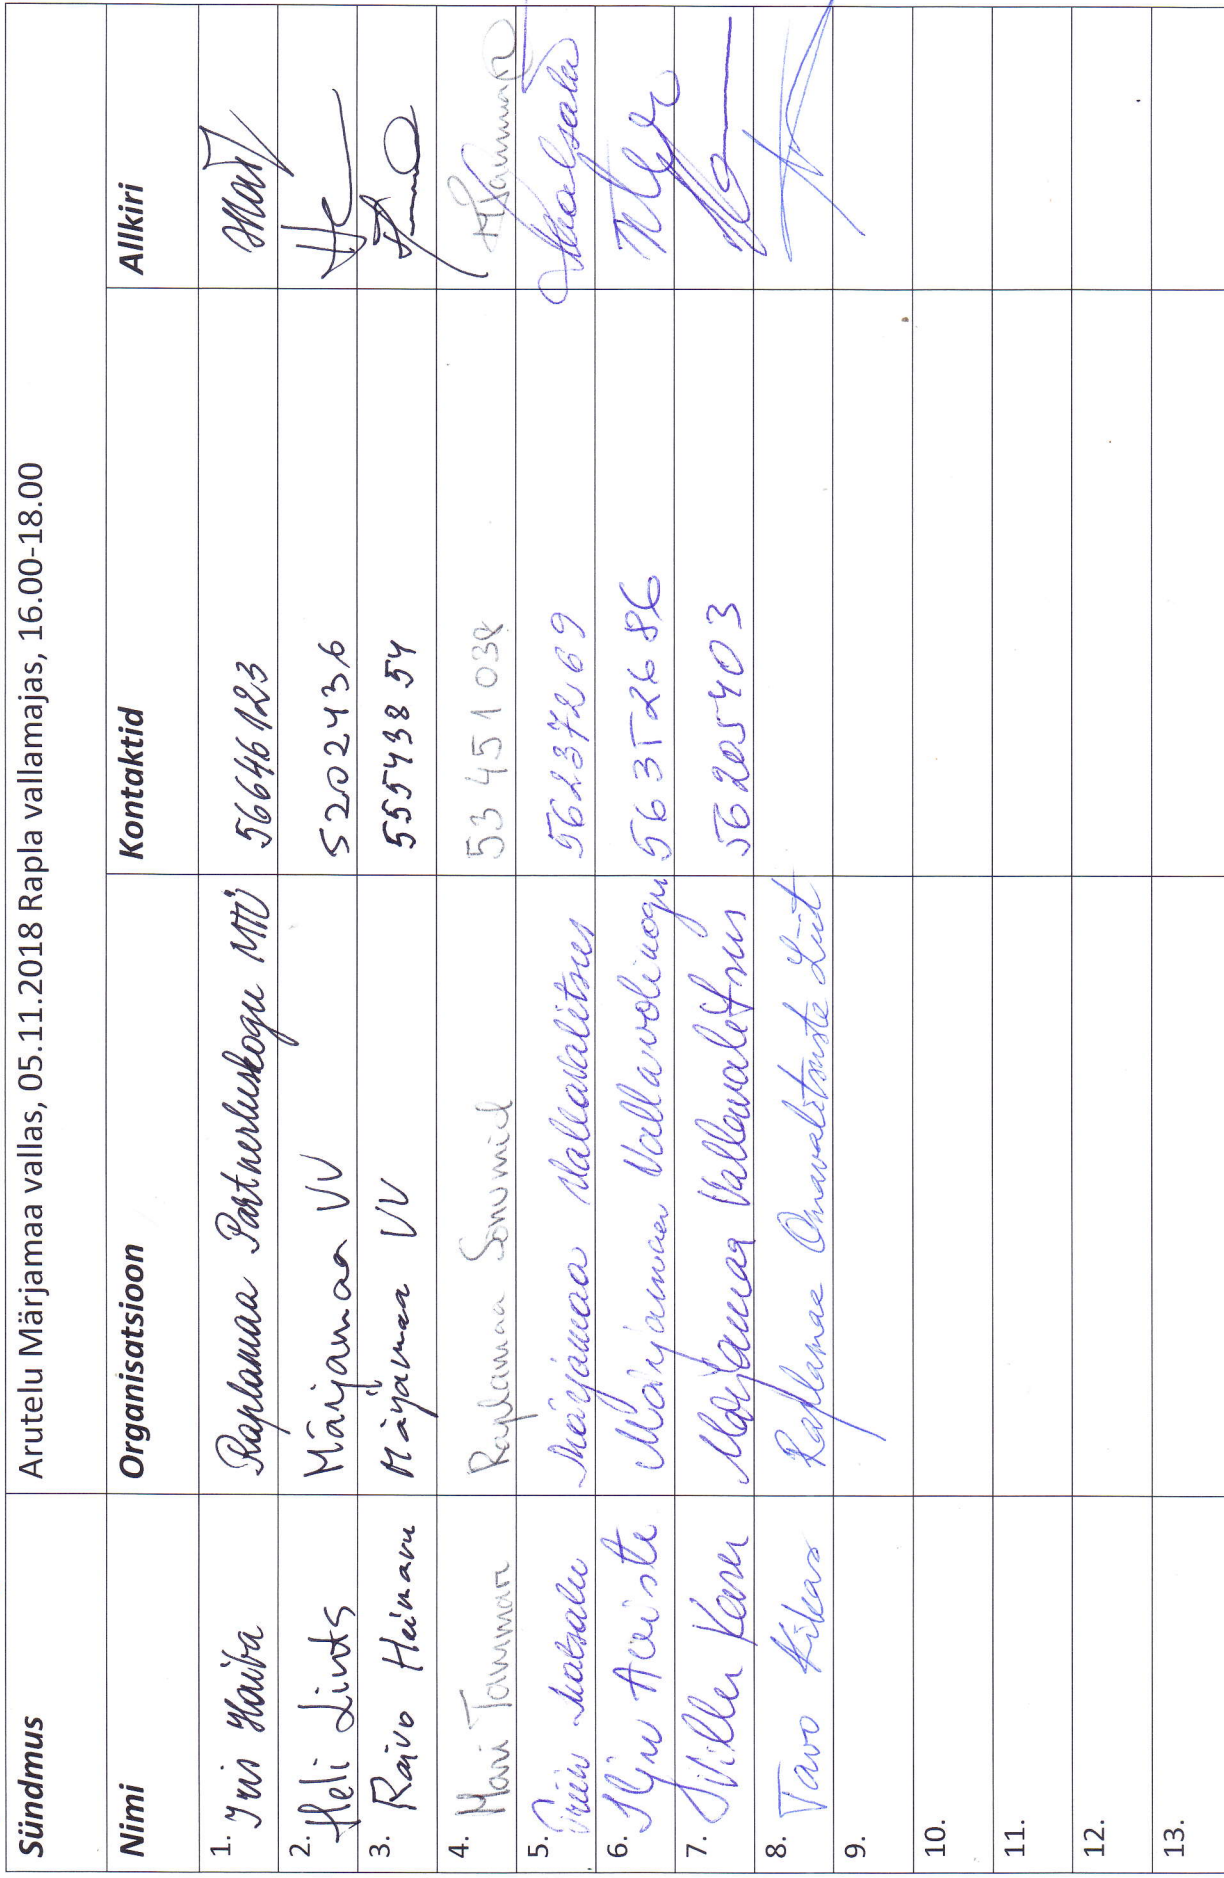 Sündmus Arutelu Märjamaa vallas, 05.11.2018 Rapla vallamajas, 16.00-18.00
Nimi Organisatsioon Kontaktid Allkiri
1. Iris Haiba Raplamaa Partnerluskogu MTÜ 56646123
2. Heli Lints Märjamaa VV 5202436
3. Raivo Heimann Märjamaa VV 55543854
4. Mari Tamman Raplamaa Sõnumid 53 451 038
5. Triin Matsalu Märjamaa Vallavalitsus 56237269
6. Märjamaa Vallavolikogu
7. Villu Karu Märjamaa Vallavalitsus 56205403
8. Tavo Kikas Raplamaa Omavalitsuste Liit
9.
10.
11.
12.
13.